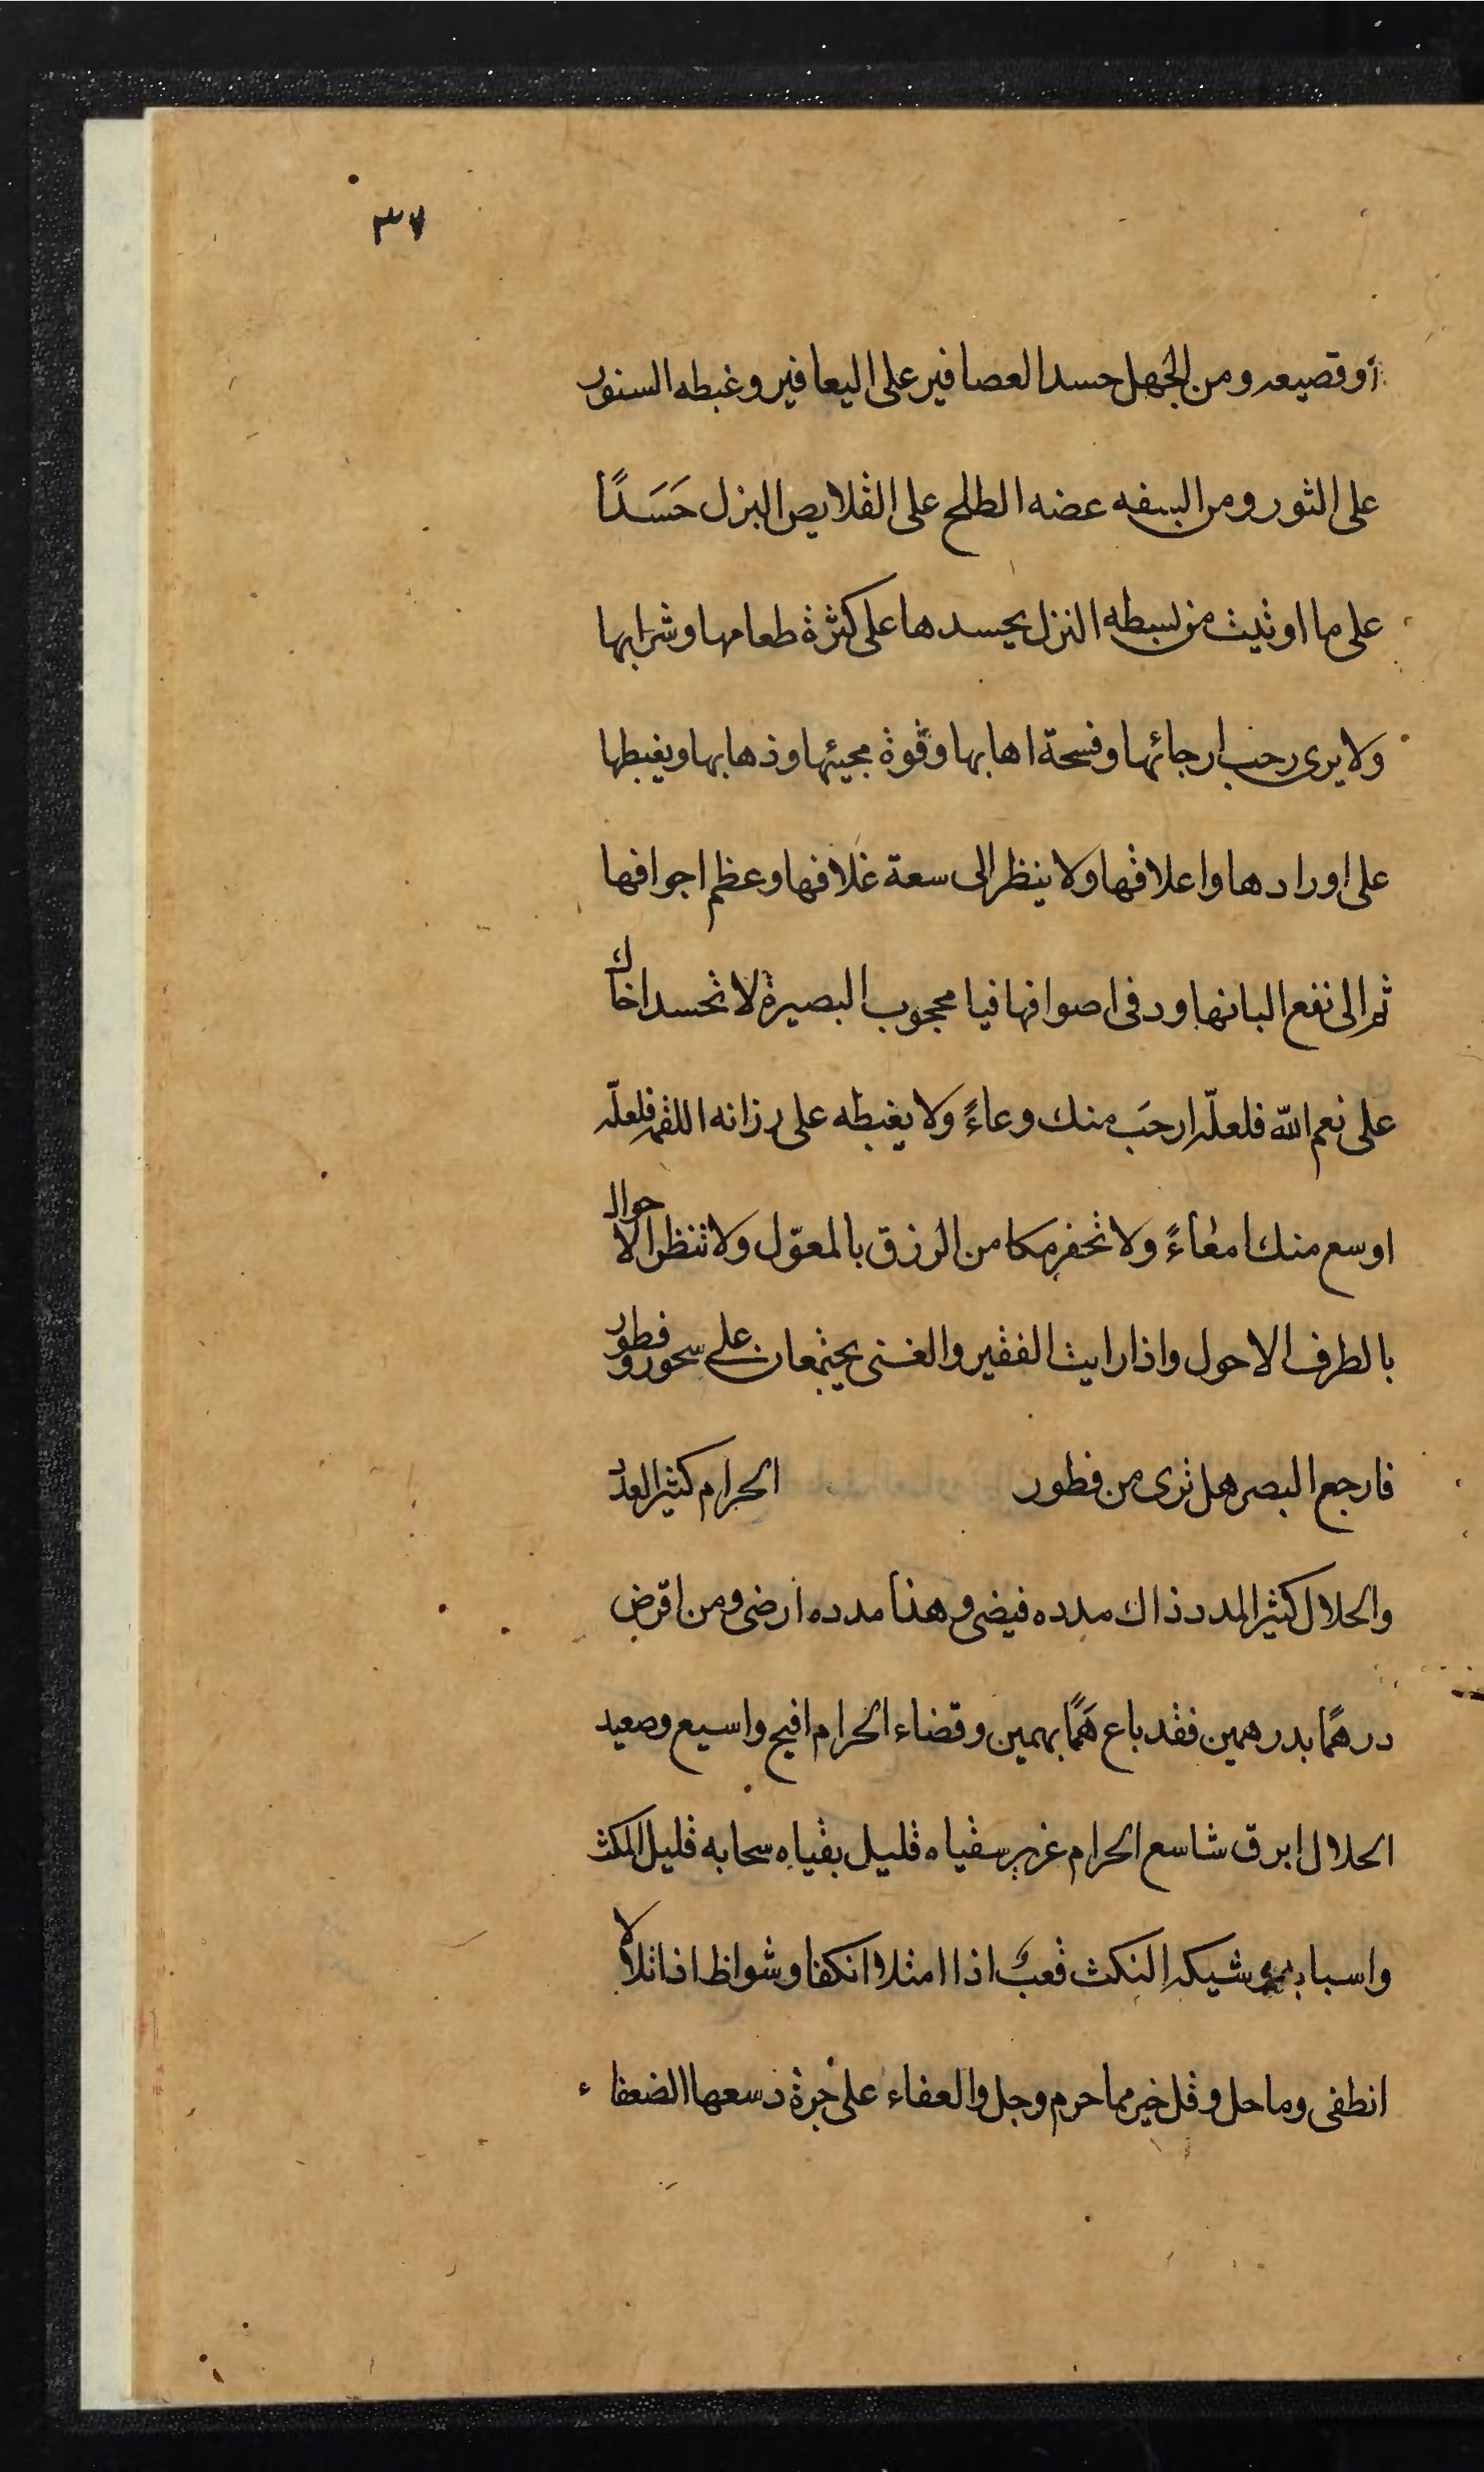 ٣٧
أوقصيعه ومن الجهل حسد العصافير على اليعافير وغبطه السنور
على الثور ومن السفه عضه الطلح على القلايص البزل حَسَدًا
على ما اوتيت من بسطه النزل يحسدها على كثرة طعامها وشرابها
ولا يرى رحب ارجائها وفسحة اهابها وقوة مجيئها وذهابها ويغبطها
على اورادها واعلافها ولا ينظر الى سعة غلافها وعظم اجوافها
ثم الى نفع البانها ودفى اصوافها فيا محجوب البصيرة لا تحسد اخاك
على نعم الله فلعلّه ارحَب منك وعاءً ولا يغبطه على رزانه اللقمه فلعلّه
اوسع منك امعاءً ولا تحفر مكامن الرزق بالمعوّل ولا تنظر الاحوال
بالطرف الاحول واذا رايت الفقير والغنى يجتمعان على سحور وفطور
فارجع البصر هل ترى من فطور الحرام كثير العدد
والحلال كثير المدد ذاك مدده فيضى وهذا مدده ارضى ومن اقرض
درهمًا بدرهمين فقد باع همًّا بهمين وقضاء الحرام افيح واسيع وصعيد
الحلال ابرق شاسع الحرام غزير سقياه قليل بقياه سحابه قليل المكث
واسبابه شيكه النكث قعبٌ اذا امتلا انكفا وشواظ اذا تلالا
انطفى وما حل وقل خير مما حرم وجل والعفاء على جرة دسعها الضعفاء